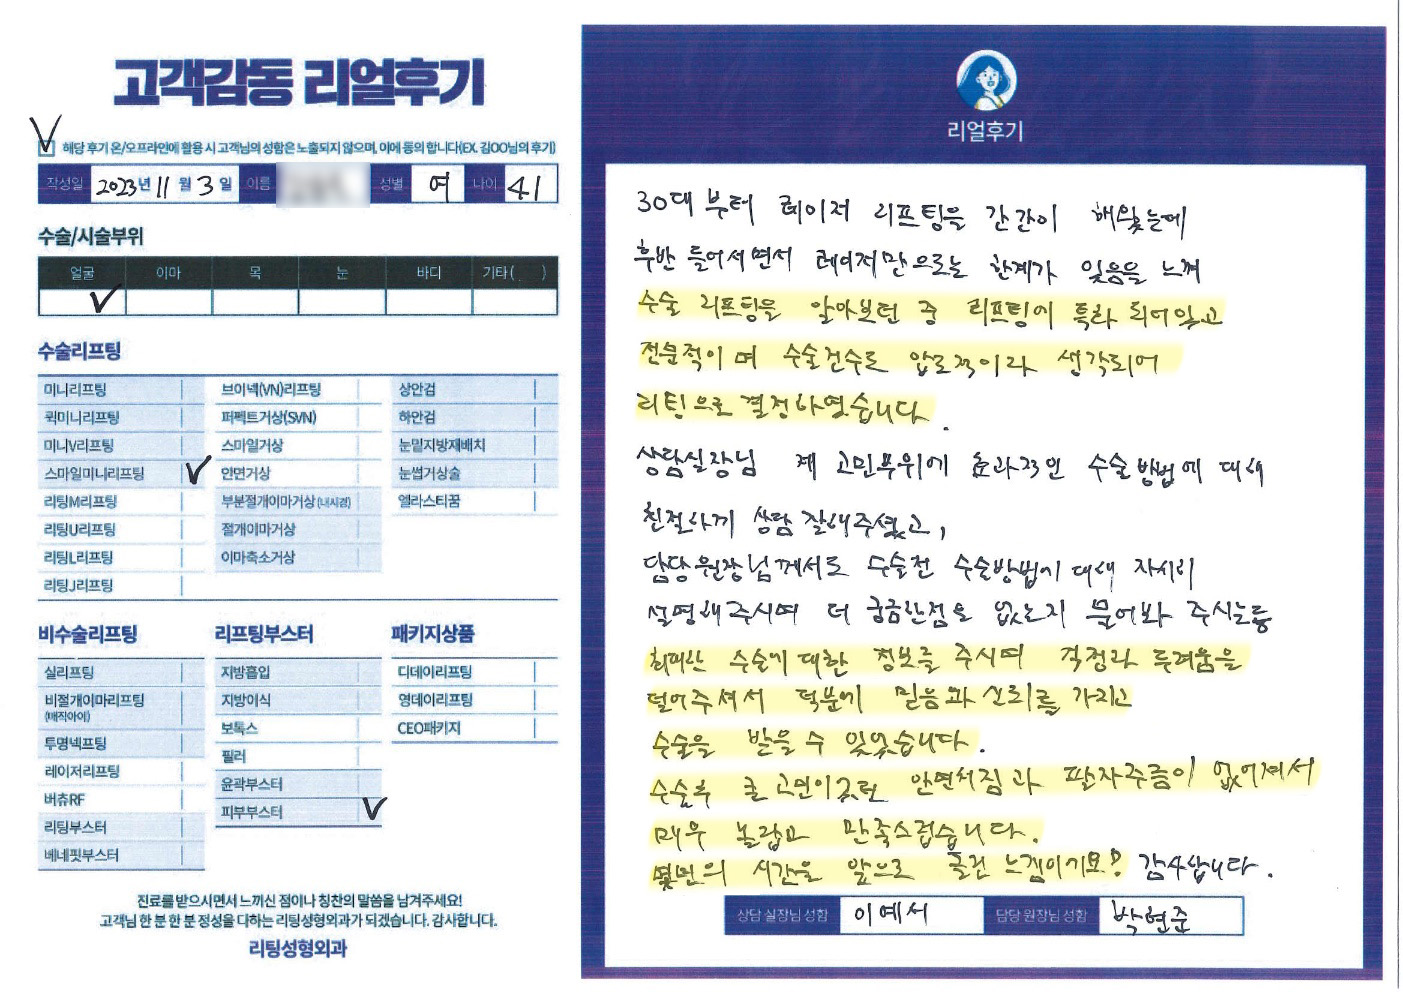 고객감동 리얼후기
해당 후기 온/오프라인에 활용 시 고객님의 성함은 노출되지 않으며, 이에 동의 합니다(EX. 김OO님의 후기)
작성일 2023년 11월 3일 이름 성별 여 나이 41
수술/시술부위
얼굴 이마 목 눈 바디 기타( )
수술리프팅
미니리프팅 브이넥(VN)리프팅 상안검
퀵미니리프팅 퍼펙트거상(SVN) 하안검
미니V리프팅 스마일거상 눈밑지방재배치
스마일미니리프팅 안면거상 눈썹거상술
리팅M리프팅 부분절개이마거상(내시경) 엘라스티꿈
리팅U리프팅 절개이마거상
리팅L리프팅 이마축소거상
리팅J리프팅
비수술리프팅 리프팅부스터 패키지상품
실리프팅 지방흡입 디데이리프팅
비절개이마리프팅 지방이식 영데이리프팅
(매직아이) 보톡스 CEO패키지
투명넥프팅 필러
레이저리프팅 윤곽부스터
버츄RF 피부부스터
리팅부스터
베네핏부스터
진료를 받으시면서 느끼신 점이나 칭찬의 말씀을 남겨주세요!
고객님 한 분 한 분 정성을 다하는 리팅성형외과가 되겠습니다. 감사합니다.
리팅성형외과
리얼후기
30대 부터 레이저 리프팅을 간간이 해왔는데
후반 들어서면서 레이저만으로는 한계가 있음을 느껴
수술 리프팅을 알아보던 중 리프팅에 특화 되어있고
전문적이며 수술건수도 압도적이라 생각되어
리팅으로 결정하였습니다.
상담실장님 제 고민부위에 효과적인 수술방법에 대해
친절하게 상담 잘해주셨고,
담당원장님께서도 수술전 수술방법에 대해 자세히
설명해주시며 더 궁금한점은 없는지 물어봐 주시는등
최대한 수술에 대한 정보를 주시며 걱정과 두려움을
덜어주셔서 덕분에 믿음과 신뢰를 가지고
수술을 받을 수 있었습니다.
수술후 큰 고민이였던 안면처짐과 팔자주름이 없어져서
매우 놀랍고 만족스럽습니다.
몇년의 시간을 앞으로 돌린 느낌이기요? 감사합니다.
상담 실장님 성함 이예서 담당 원장님 성함 박현준